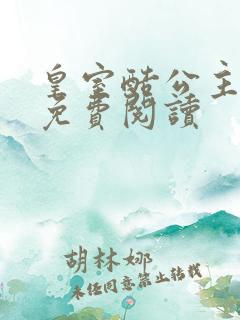 皇室酷公主
免費閱讀
胡林娜
未经同意禁止转载